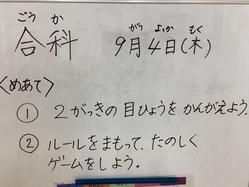 ごう か
合科
がつ よっか もく
9月4日(木)
<めあて>
① 2がっきの目ひょうをかんがえよう。
② ルールをまもって、たのしく
ゲームをしよう。